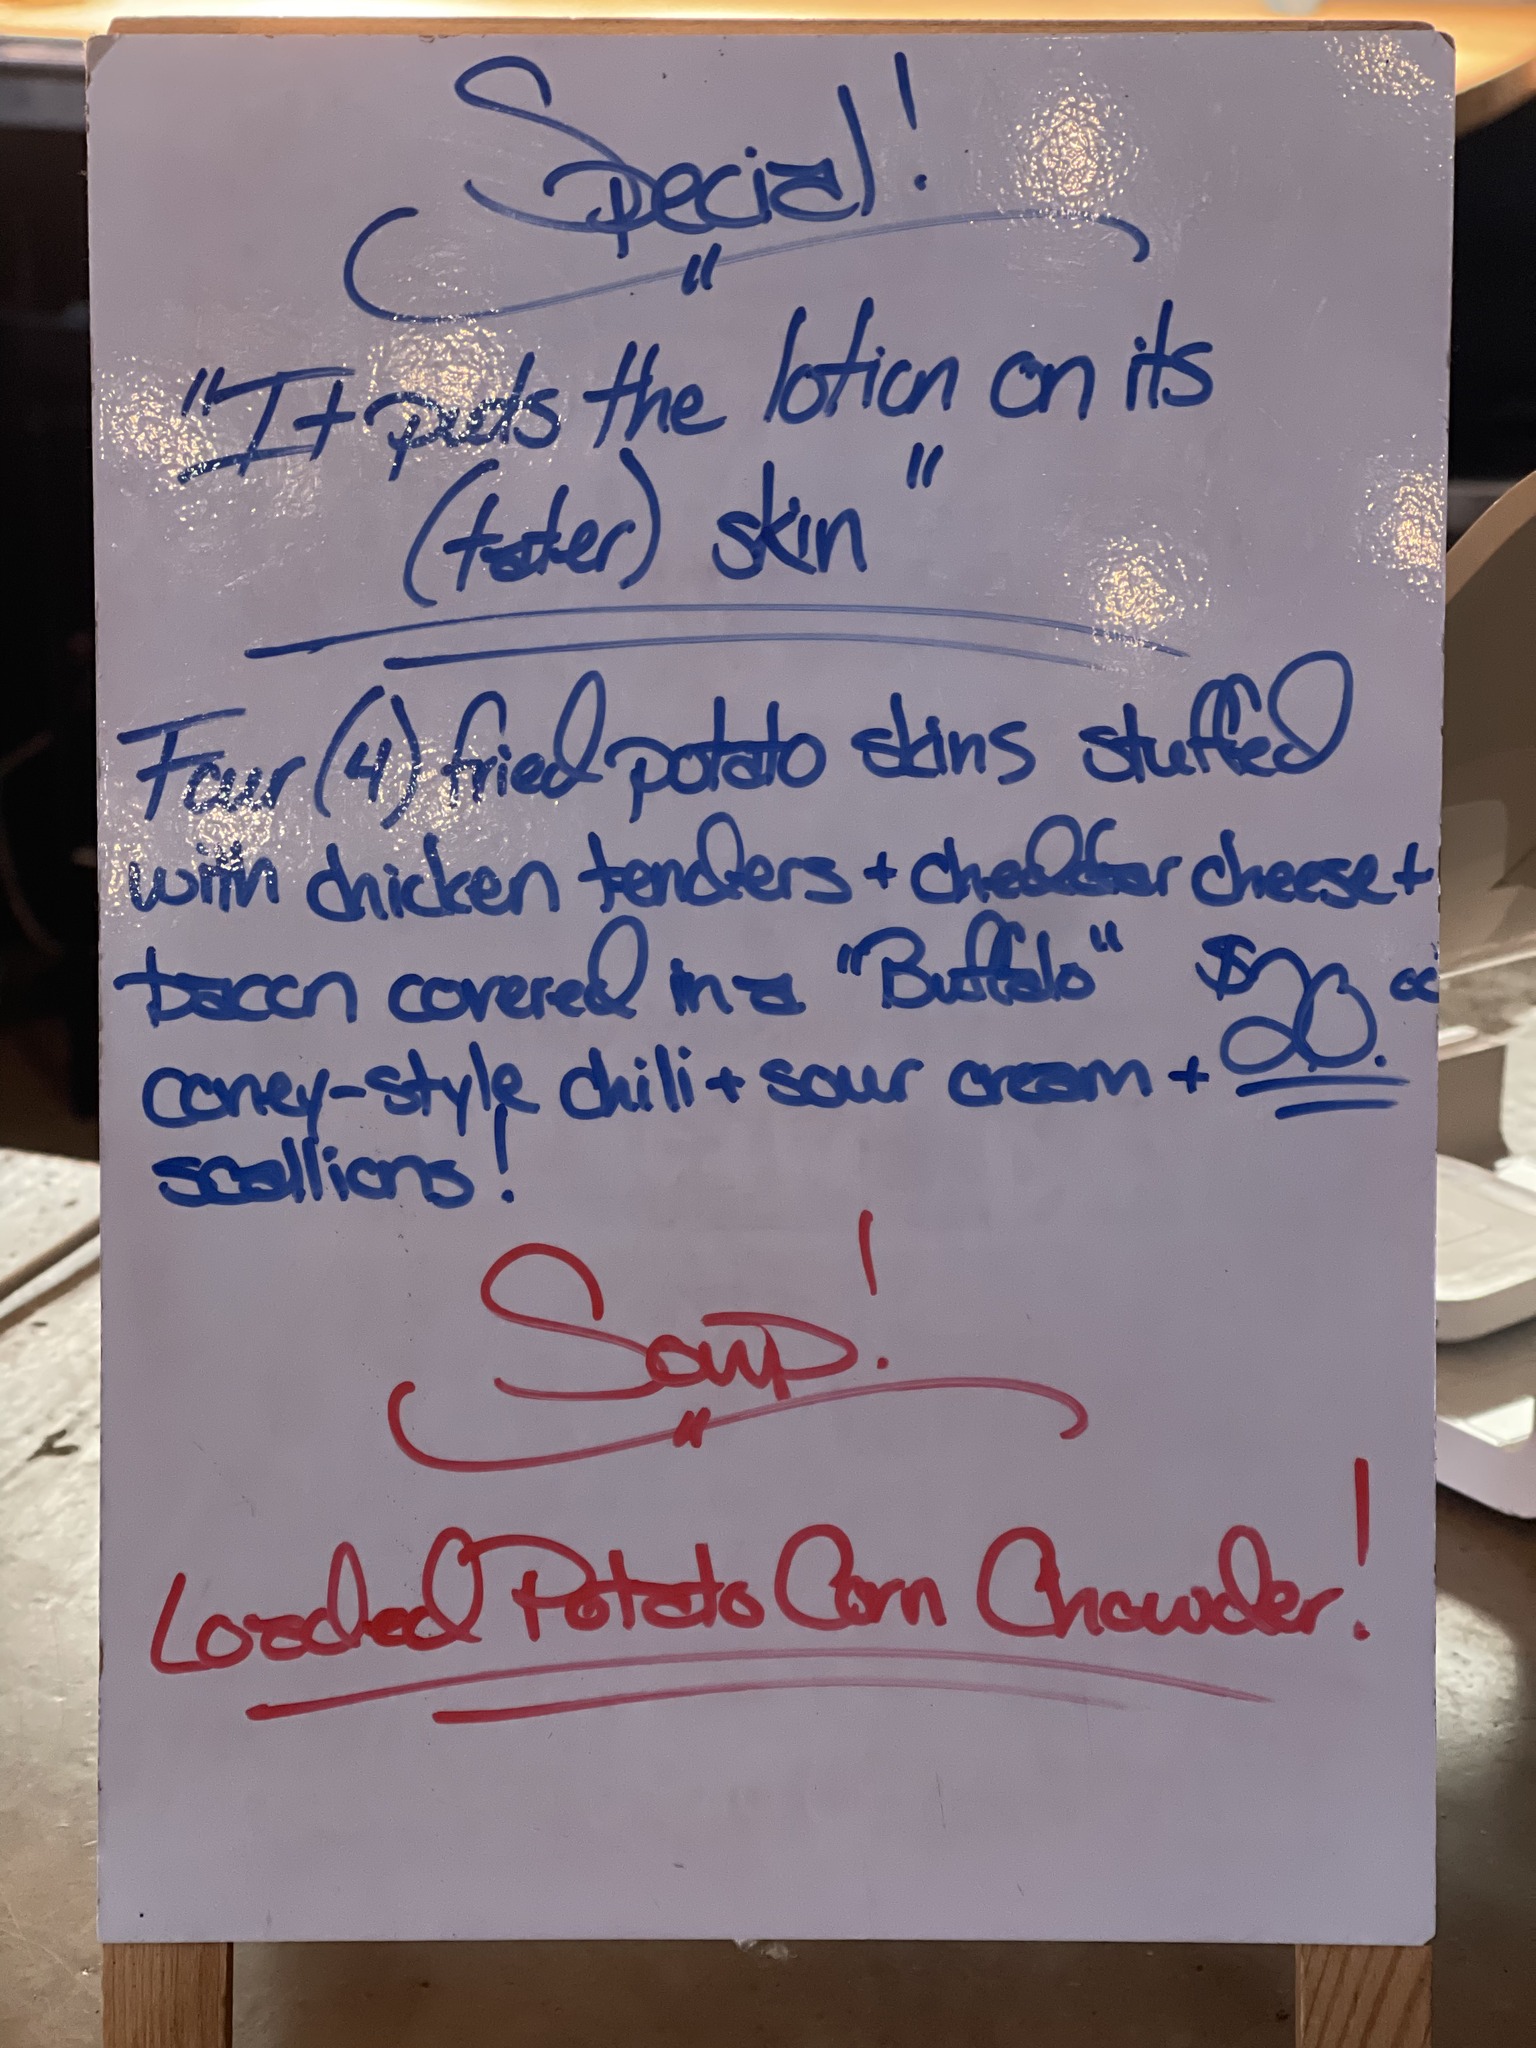 Special!
"
"It puts the lotion on its
(tater) skin"
Four (4) fried potato skins stuffed
with chicken tenders + cheddar cheese +
bacon covered in a "Buffalo" $20.00
coney-style chili + sour cream +
scallions!
Soup!
"
Loaded Potato Corn Chowder!